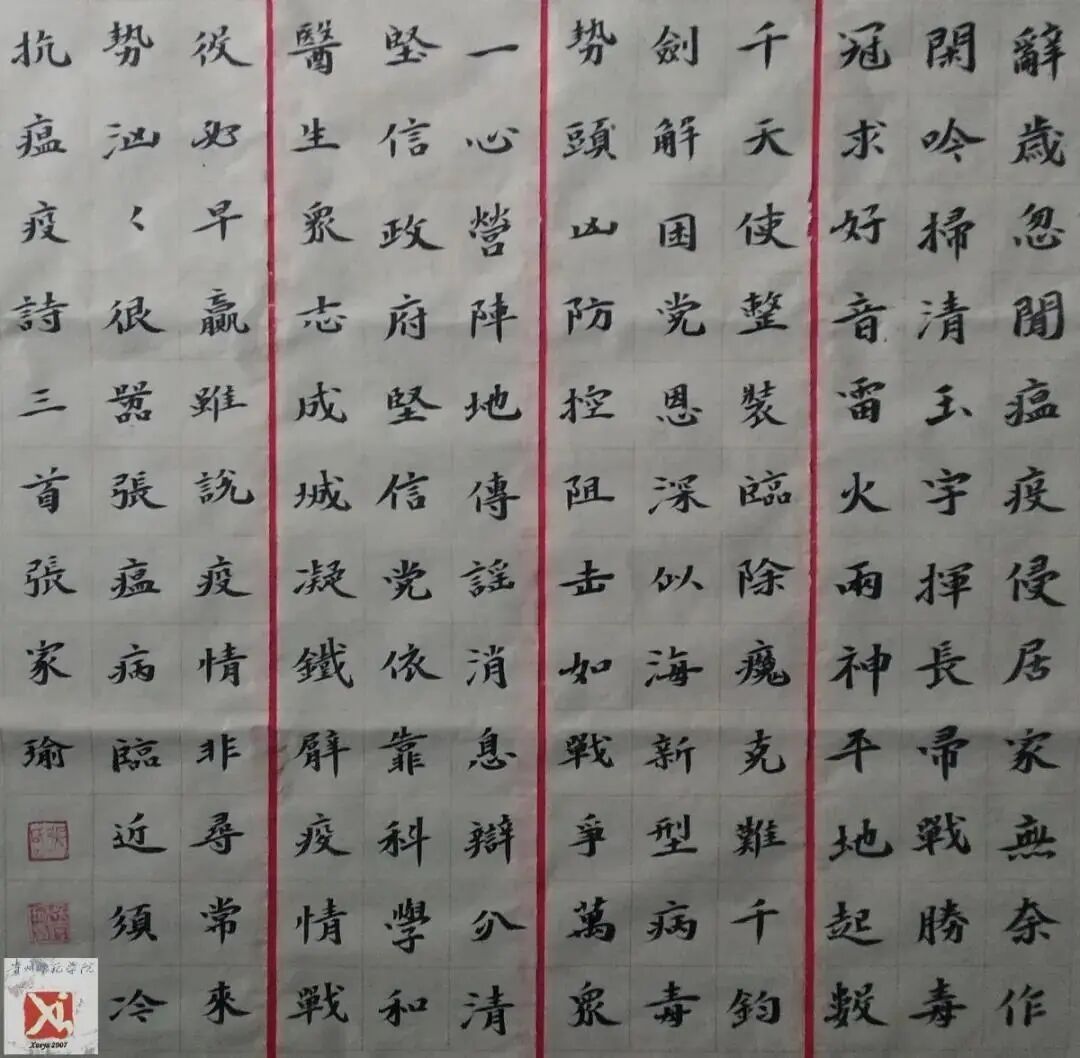 辭歲忽聞瘟疫侵居家無奈作
閑吟掃清玉宇揮長帚戰勝毒
冠求好音雷火兩神平地起數
千天使整裝臨除魔克難千鈞
劍解困党恩深似海新型病毒
勢頭凶防控阻击如戰爭萬衆
一心營陣地傳謡消息辯分清
堅信政府堅信党依靠科學和
醫生衆志成城凝鐵臂疫情戰
役必早贏雖説疫情非尋常來
勢汹々很嚣張瘟病臨近須冷
抗瘟疫詩三首張家瑜
贵州师范学院